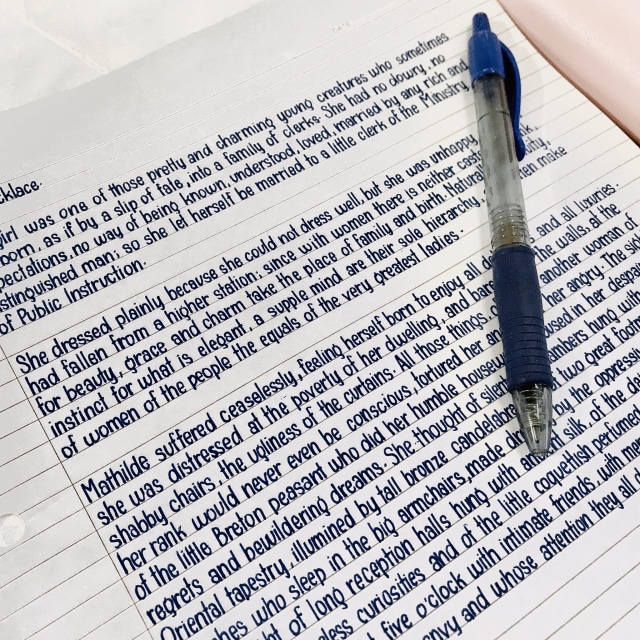 cklace.
girl was one of those pretty and charming young creatures who sometimes
born, as if by a slip of fate, into a family of clerks. She had no dowry, no
pectations, no way of being known, understood, loved, married by any rich and
stinguished man; so she let herself be married to a little clerk of the Ministry
of Public Instruction.
She dressed plainly because she could not dress well, but she was unhappy
had fallen from a higher station; since with women there is neither caste nk,
for beauty, grace and charm take the place of family and birth. Natural ity,
instinct for what is elegant, a supple mind are their sole hierarchy, en make
of women of the people the equals of the very greatest ladies.
Mathilde suffered ceaselessly, feeling herself born to enjoy all d and all luxuries.
she was distressed at the poverty of her dwelling, and bar e walls, at the
shabby chairs, the ugliness of the curtains. All those things, o another woman of
her rank would never even be conscious, tortured her an her angry. The si
of the little Breton peasant who did her humble housew oused in her despa
regrets and bewildering dreams. She thought of silen mbers hung with
Oriental tapestry, illumined by tall bronze candelabra two great foot
hes who sleep in the big armchairs, made dr by the oppress
ht of long reception halls hung with ancient silk, of the d
less curiosities and of the little coquetish perfume
t five o'clock with intimate friends, with me
nvy and whose attention they all